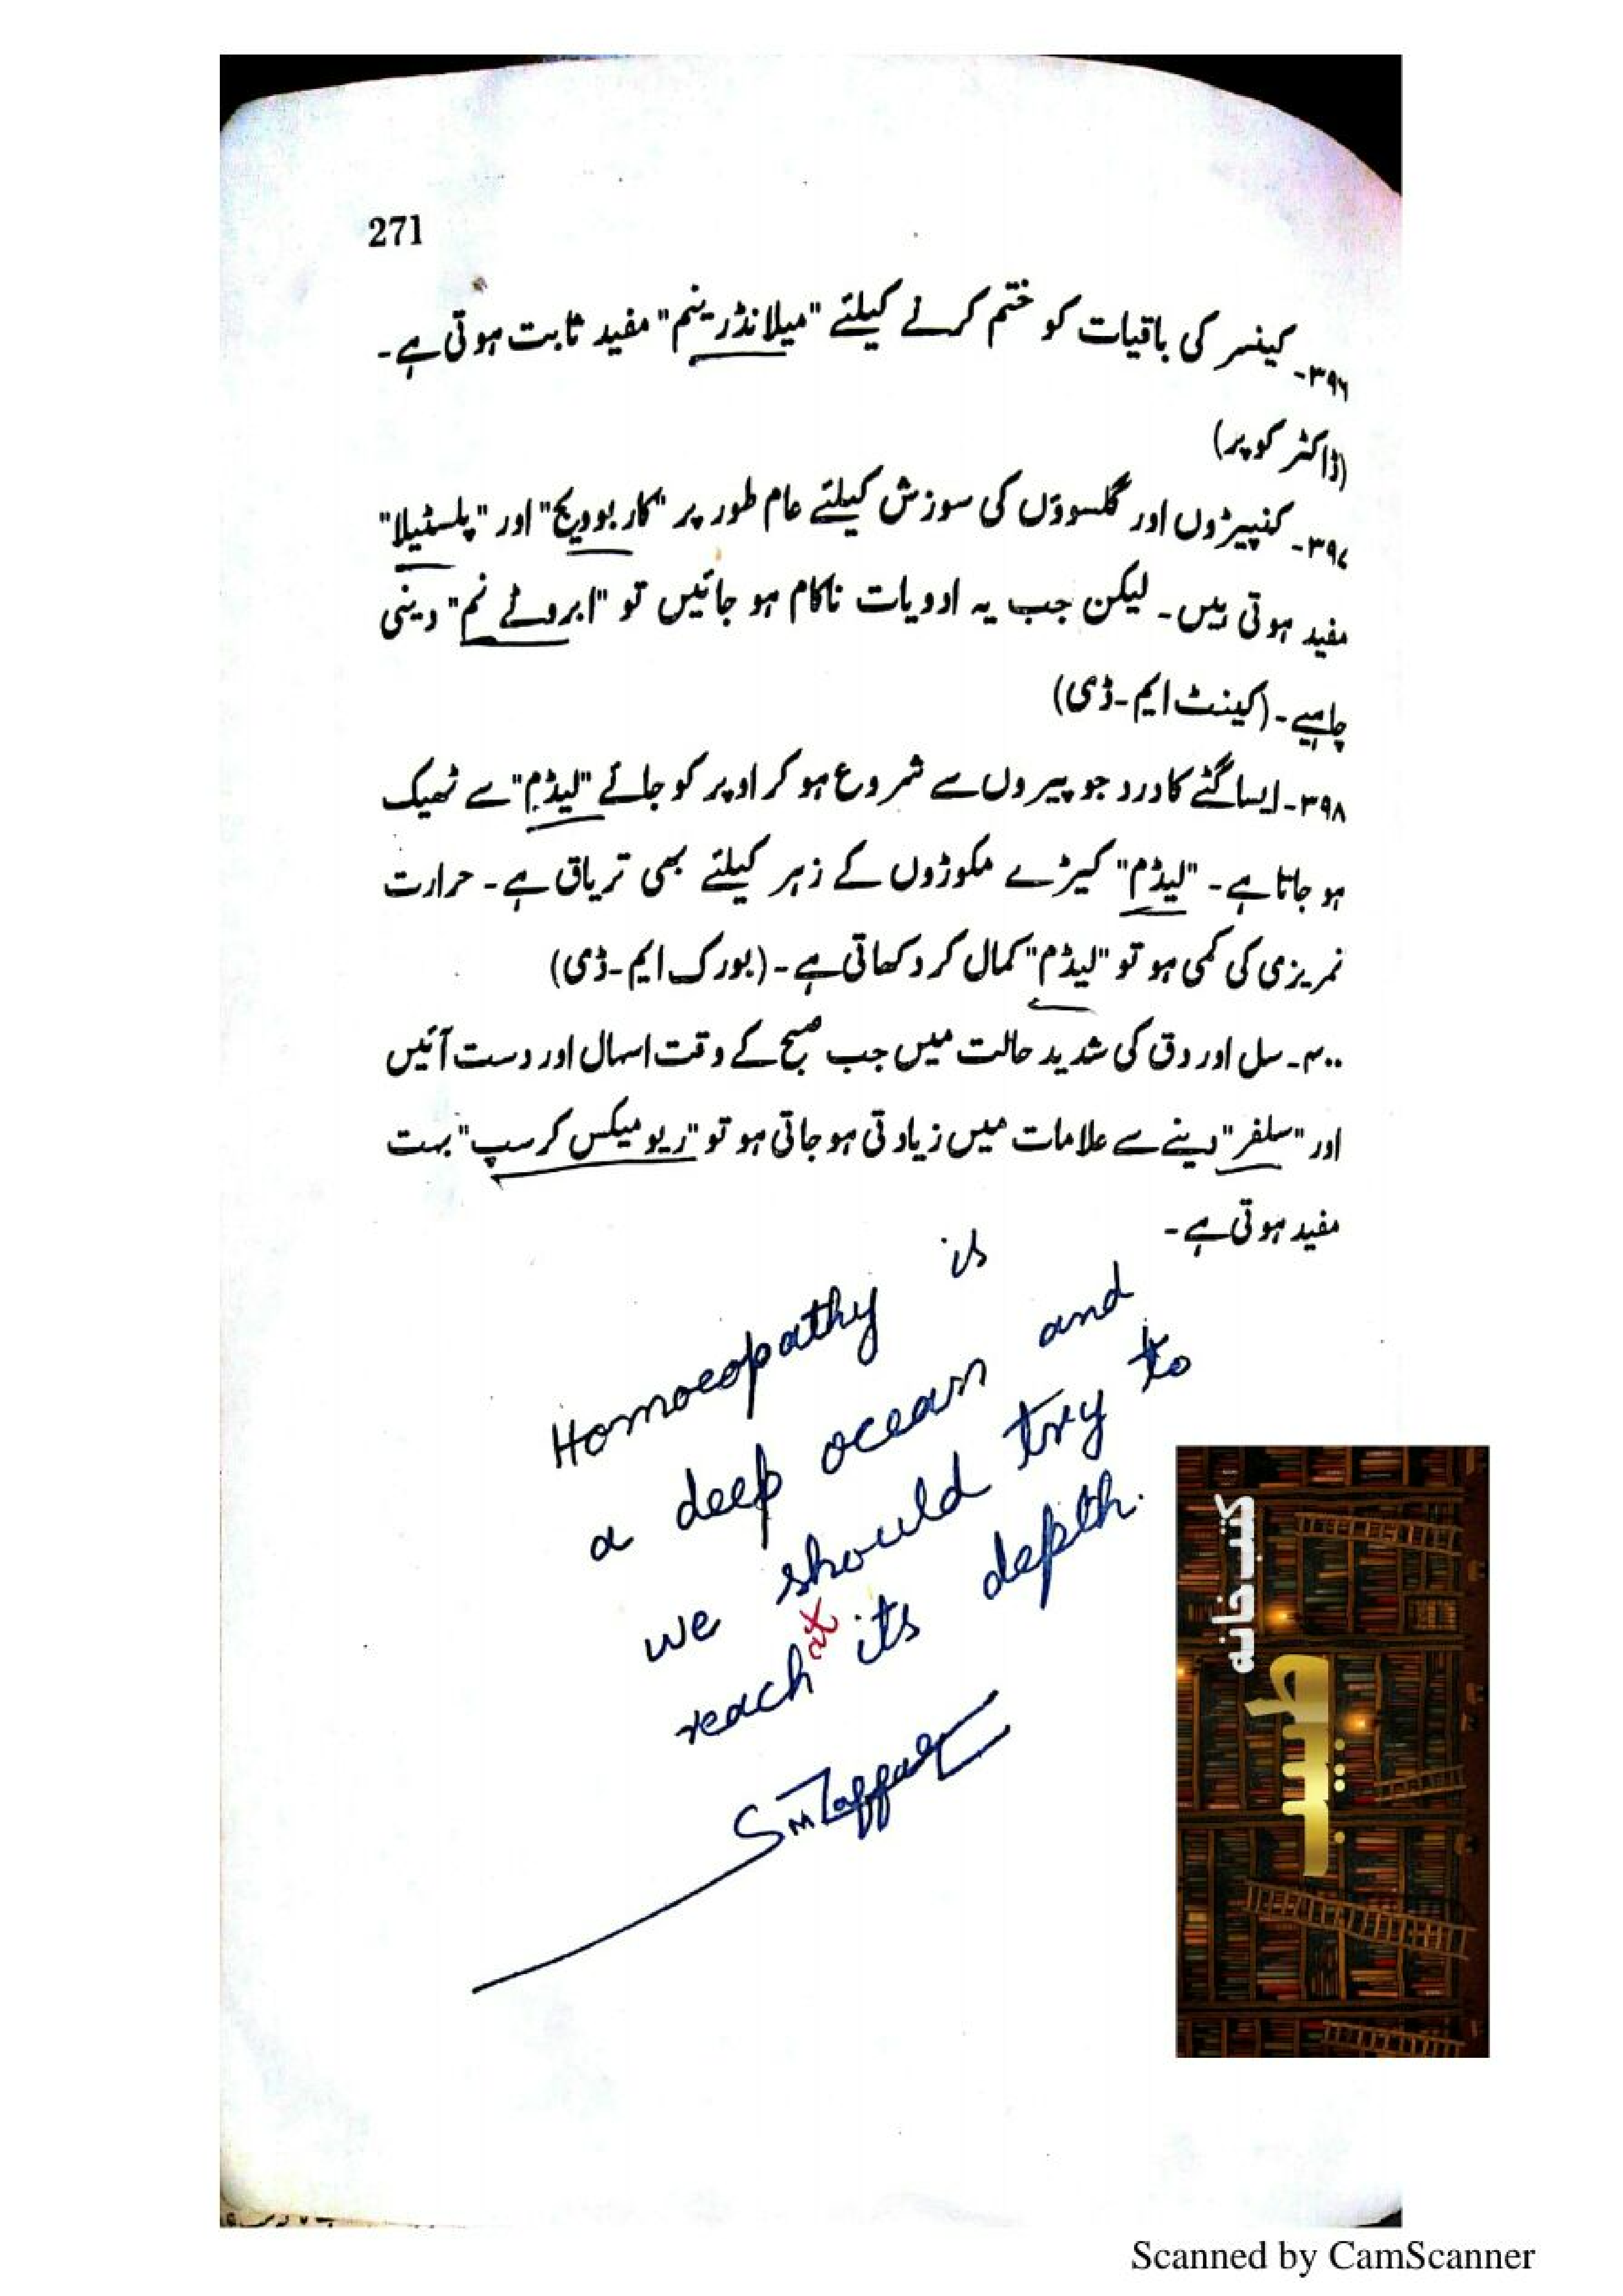 271
۳۹۶۔ کینسر کی باقیات کو ختم کرنے کیلئے "میلانڈرینم" مفید ثابت ہوتی ہے۔
(ڈاکٹر کوپر)
۳۹۷۔ کنپیڑوں اور گلسوؤں کی سوزش کیلئے عام طور پر "کاربوویج" اور "پلسٹیلا"
مفید ہوتی ہیں۔ لیکن جب یہ ادویات ناکام ہو جائیں تو "ابروٹے نم" دینی
چاہیے۔ (کینٹ ایم۔ڈی)
۳۹۸۔ ایسا گٹے کا درد جو پیروں سے شروع ہو کر اوپر کو جائے "لیڈم" سے ٹھیک
ہو جاتا ہے۔ "لیڈم" کیڑے مکوڑوں کے زہر کیلئے بھی تریاق ہے۔ حرارت
نمریزی کی کمی ہو تو "لیڈم" کمال کر دکھاتی ہے۔ (بورک ایم۔ڈی)
۴۰۰۔ سل اور دق کی شدید حالت میں جب صبح کے وقت اسہال اور دست آئیں
اور "سلفر" دینے سے علامات میں زیادتی ہو جاتی ہو تو "ریومیکس کرسپ" بہت
مفید ہوتی ہے۔
Homoeopathy is
a deep ocean and
we should try to
reach at its depth.
SM Zaffar
کتب خانہ
طبیب
Scanned by CamScanner